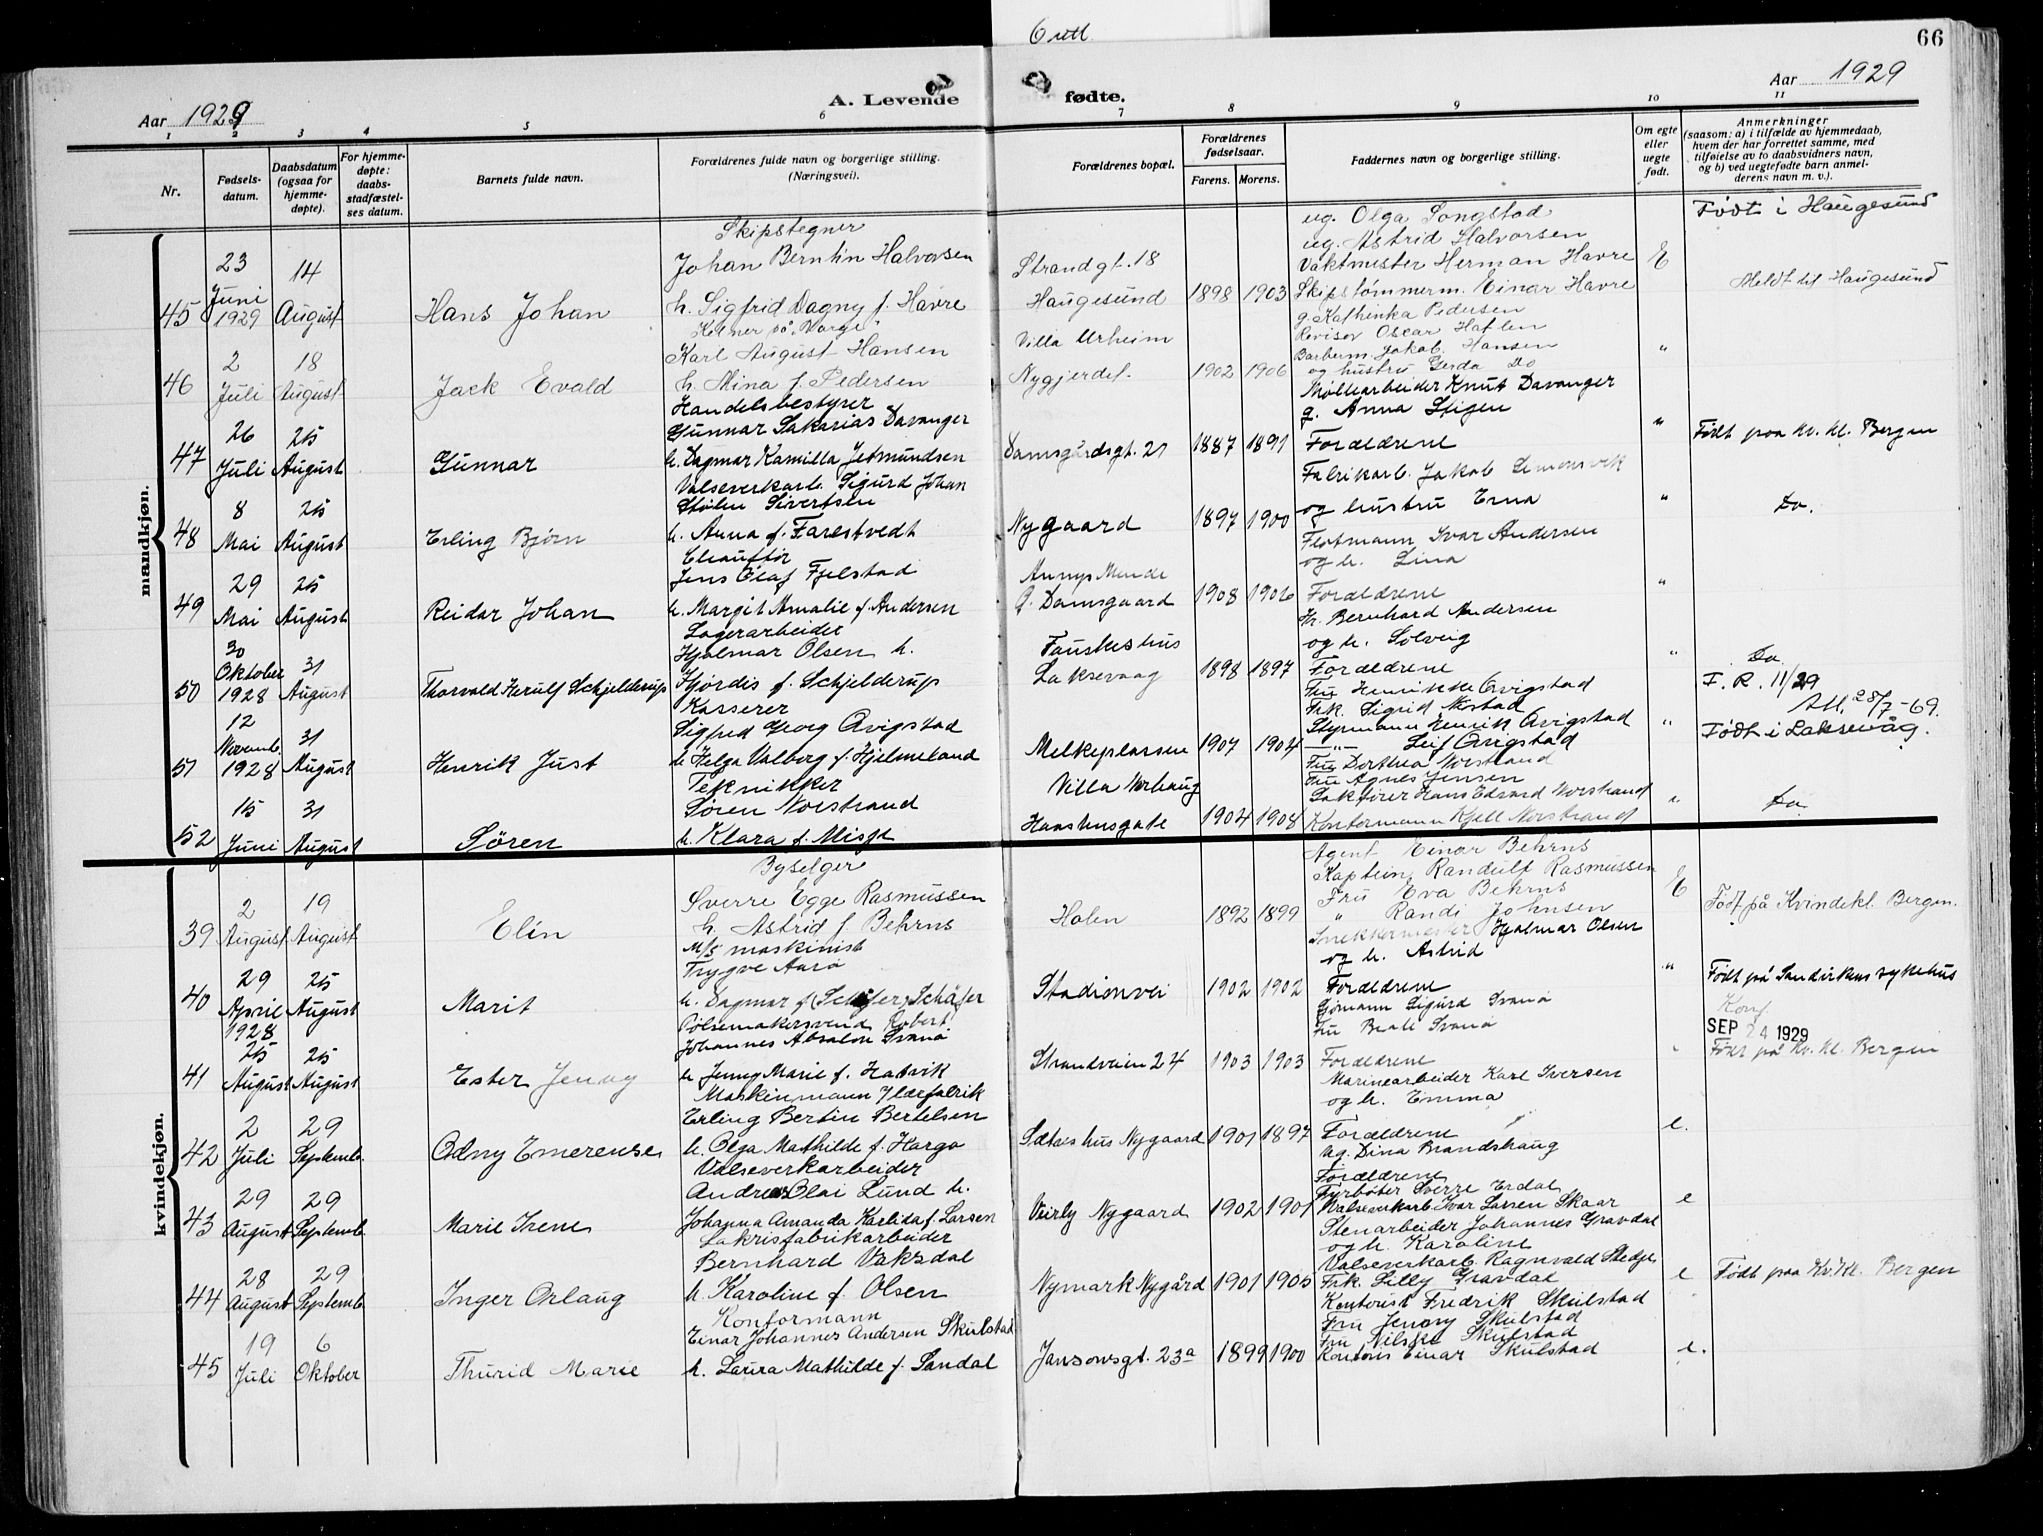 6 utt.
66
Aar 1929
A. Levende
fødte.
Aar 1929
1 2 3 4 5 6 7 8 9 10 11
Nr.
Fødsels-
datum.
Daabsdatum
(ogsaa for
hjemme-
døpte).
For hjemme-
døpte:
daabs-
stadfæstel-
ses datum.
Barnets fulde navn.
Forældrenes fulde navn og borgerlige stilling.
(Næringsvei).
Forældrenes bopæl.
Forældrenes
fødselsaar.
Farens. Morens.
Faddernes navn og borgerlige stilling.
Om egte
eller
uegte
født.
Anmerkninger
(saasom: a) i tilfælde av hjemmedaab,
hvem der har forrettet samme, med
tilføielse av to daabsvidners navn,
og b) ved uegtefødte barn anmel-
derens navn m. v.).
mandkjøn.
45
23
Juni
1929
14
August
Hans Johan
Skipstegner
Johan Berntin Halvorsen
h. Sigfrid Dagny f. Havre
Strandgt. 18
Haugesund
1898 1903
ug. Olga Songstad
ug. Astrid Halvorsen
Vaktmester Herman Havre
Skipstømmerm. Einar Havre
E
Født i Haugesund
Meldt til Haugesund
46
2
Juli
18
August
Jack Evald
Kelner på "Norge"
Karl August Hansen
h. Mina f. Pedersen
Villa Urheim
Nygjerdet.
1902 1906
g. Kathinka Pedersen
Revisor Oscar Haflen
Barberm. Jakob Hansen
og hustru Gerda Do
"
47
26
Juli
25
August
Gunnar
Handelsbestyrer
Gunnar Sakarias Davanger
h. Dagmar Kamilla Jetmundsen
Damsgårdsgt. 21
1887 1891
Møllearbeider Knut Davanger
g. Anna Stigen
Forældrene
"
Født paa Kv. kl. Bergen
48
8
Mai
25
August
Erling Bjørn
Valseverkarb. Sigurd Johan
Stølen Sivertsen
h. Anna f. Farestvedt
Nygaard
1897 1900
Fabrikarb. Jakob Simonsvik
og hustru Erna
"
Do.
49
29
Mai
25
August
Reidar Johan
Chauffør
Jens Olaf Fjelstad
h. Margit Amalie f. Andersen
Annys Minde
G. Damsgaard
1908 1906
Flotmann Ivar Andersen
og h. Lina
Forældrene
"
50
30
Oktober
1928
31
August
Thorvald Herulf Schjelderup
Lagerarbeider
Hjalmar Olsen h.
Hjørdis f. Schjelderup
Fauskeshus
Laksevaag
1898 1897
Hr. Bernhard Andersen
og h. Solveig
Forældrene
"
Do.
F. R. 11/29
Att. 28/7-69.
51
12
Novemb.
1928
31
August
Henrik Just
Kasserer
Sigfred Georg Avigstad
h. Helga Valborg f. Hjelmeland
Melkeplassen
1907 1904
Fru Henrikke Avigstad
Frk. Sigrid Nestad
Styrmann Henrik Avigstad
—"— Leif Avigstad
"
Født i Laksevåg.
52
15
Juni
31
August
Søren
Teknikker
Søren Norstrand
h. Klara f. Misje
Villa Norhaug
Haashusgate
1904 1908
Fru Dorthea Norstrand
Fru Agnes Jensen
Sakfører Hans Edvard Norstrand
Kontormann Kjell Norstrand
"
Do.
kvindekjøn.
39
2
August
19
August
Elin
Byselger
Sverre Egge Rasmussen
h. Astrid f. Behrns
Holen
1892 1899
Agent Einar Behrns
Kaptein Randulf Rasmussen
Fru Eva Behrns
" Randi Johnsen
E
Født på Kvindekl. Bergen.
40
29
April
1928
25
August
Marit
M/S maskinist
Trygve Aarø
h. Dagmar f. Schäfer
Stadionvei
1902 1902
Snekkermester Hjalmar Olsen
og h. Astrid
Forældrene
"
Født på Sandvikens sykehus
Konf
SEP 24 1929
41
25
August
25
August
Ester Jenny
Pølsemakersvend Robert
Johannes Absalon Svanø
h. Jenny Marie f. Hatvik
Strandveien 24
1903 1903
Gjømann Sigurd Svanø
Fru Beate Svanø
Forældrene
"
Født på Kv. kl. Bergen
42
2
Juli
29
Septemb.
Odny Emerense
Maskinmann Ilderfabrik
Erling Bertin Bertelsen
h. Olga Mathilde f. Harga
Sætreshus Nygaard
1901 1897
Marinearbeider Karl Iversen
og h. Emma
Forældrene
e.
43
29
August
29
Septemb.
Marie Irene
Valseverkarbeider
Andreas Blai Lund h.
Johanna Amanda Karlida f. Larsen
Veirly Nygaard
1902 1901
ug. Dina Brandshaug
Forældrene
Fyrbøter Sverre Erdal
Valseverkarb. Ivar Larsen Skaar
e
44
28
August
29
Septemb.
Inger Orlaug
Lakrisfabrikarbeider
Bernhard Vaksdal
h. Karoline f. Olsen
Nymark Nygård
1901 1905
Stenarbeider Johannes Gravdal
og h. Karoline
Valseverkarb. Ragnvald Skedje
Frk. Lilly Gravdal
e
Født paa Kv. kl. Bergen
45
19
Juli
6
Oktober
Thurid Marie
Kontormann
Einar Johannes Andersen Skulstad
h. Laura Mathilde f. Sandal
Jansonsgt. 23a
1899 1900
Kontorist Fredrik Skulstad
Fru Jenny Skulstad
Fru Nilska Skulstad
Kontoris Einar Skulstad
e.